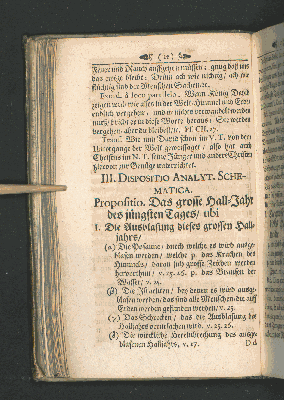 (12)
Feuer und Rauch aufgehen müssen; gnug daß uns
das ewige bleibt: Drum ach wie nichtig/ ach wie
flüchtig sind der Menschen Sachen etc.
Exord. à loco par. fel. Wenn König David
zeigen will wie alles in der Welt Himmel und Erd-
endlich vergehen/ und wandelt verwandelt werden
muß/ bricht er in diese Worte heraus: Sie werden
vergehen/ aber du bleibest/ etc. Ps. CII. 27.
Transf. Wie nun David schon im V. T. von dem
Untergange der Welt geweissaget/ also hat auch
Christus im N. T. seine Jünger und andere Christen
hiervon zur Genüge unterrichtet.
III. DISPOSITIO ANALYT. SCHE-
MATICA.
Propositio. Das grosse Hall-Jahr
des jüngsten Tages/ ubi
1. Die Ausblasung dieses grossen Hall-
jahrs/
(α) Die Posaune/ durch welche es wird ausge-
blasen werden/ welche p. das Krachen des
Himmels/ darin sich grosse Zeichen werden
hervorthun/ v. 25. 26. p. das Brausen der
Wasser/ v. 25.
(β) Die Israeliten/ bey denen es wird ausge-
blasen werden/ das sind alle Menschen die auff
Erden werden gefunden werden/ v. 25.
(γ) Das Schrecken/ das die Ausblasung des
Halljahrs verursachen wird/ v. 25. 26.
(δ) Die wirckliche Hereinbrechung des ausge-
blasenen Halljahrs/ v. 27.